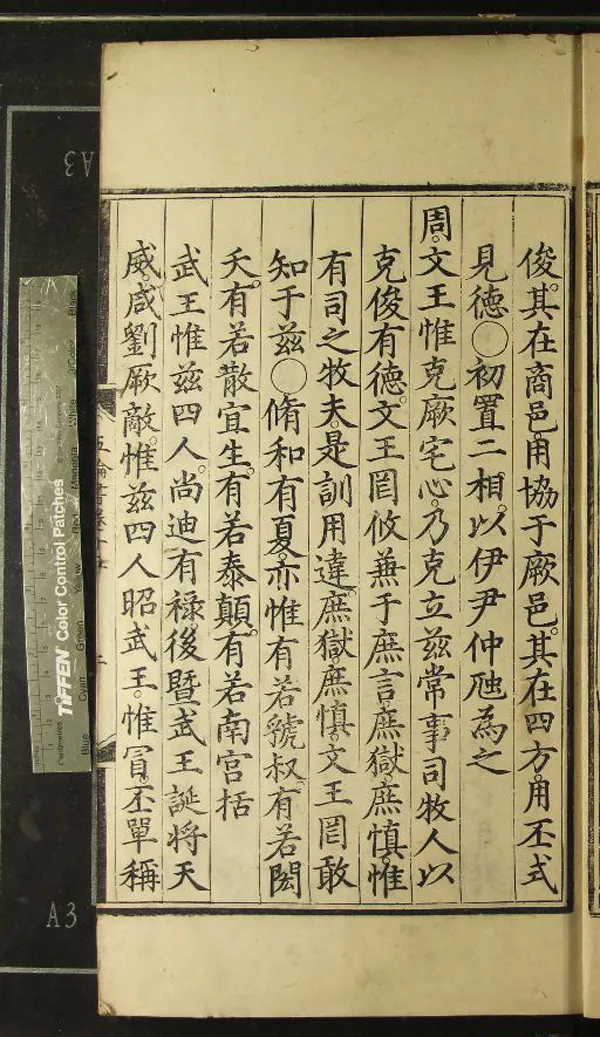 俊。其在商邑。用協于厥邑。其在四方。用丕式
見德○初置二相。以伊尹仲虺為之
周。文王惟克厥宅心。乃克立茲常事司牧人以
克俊有德。文王罔攸兼于庶言。庶獄。庶慎。惟
有司之牧夫。是訓用違。庶獄。庶慎。文王罔敢
知于茲○脩和有夏。亦惟有若虢叔。有若閎
夭。有若散宜生。有若泰顛。有若南宮括
武王惟茲四人。尚迪有祿。後暨武王誕將天
威。咸劉厥敵。惟茲四人昭武王。惟冒。丕單稱
五倫書卷十
二
A3
A3
TIFFEN Color Control Patches
Centimetres
Blue
Cyan
Green
Yellow
Red
Magenta
White
Black